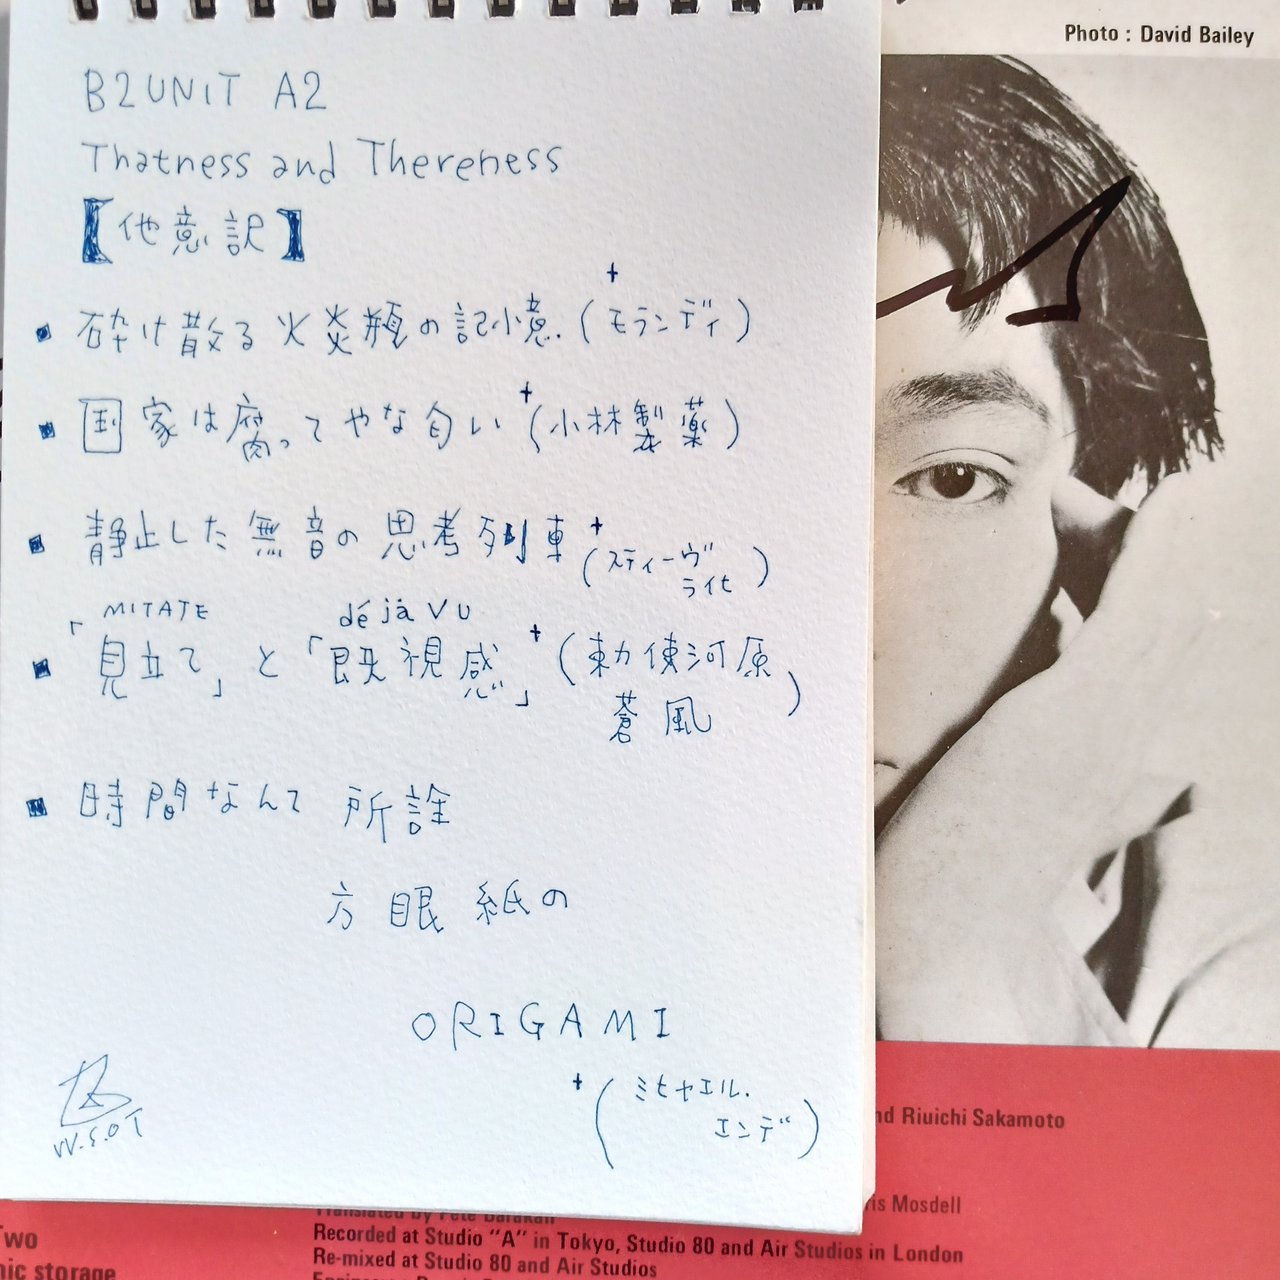 Photo : David Bailey
B2UNIT A2
Thatness and Thereness
【他意訳】
▪ 砕け散る火炎瓶の記憶.+(モランディ)
▪ 国家は腐ってやな匂い+(小林製薬)
▪ 静止した無音の思考列車+(スティーヴ
ライヒ)
MITATE déjà VU
▪ 「見立て」と「既視感」+(勅使河原
蒼風)
▪ 時間なんて 所詮
方眼紙の
ORIGAMI
+(ミヒャエル.
エンデ)
W.S.OT
nd Riuichi Sakamoto
ris Mosdell
Translated by Pete Barakan
Two
Recorded at Studio "A" in Tokyo, Studio 80 and Air Studios in London
nic storage
Re-mixed at Studio 80 and Air Studios